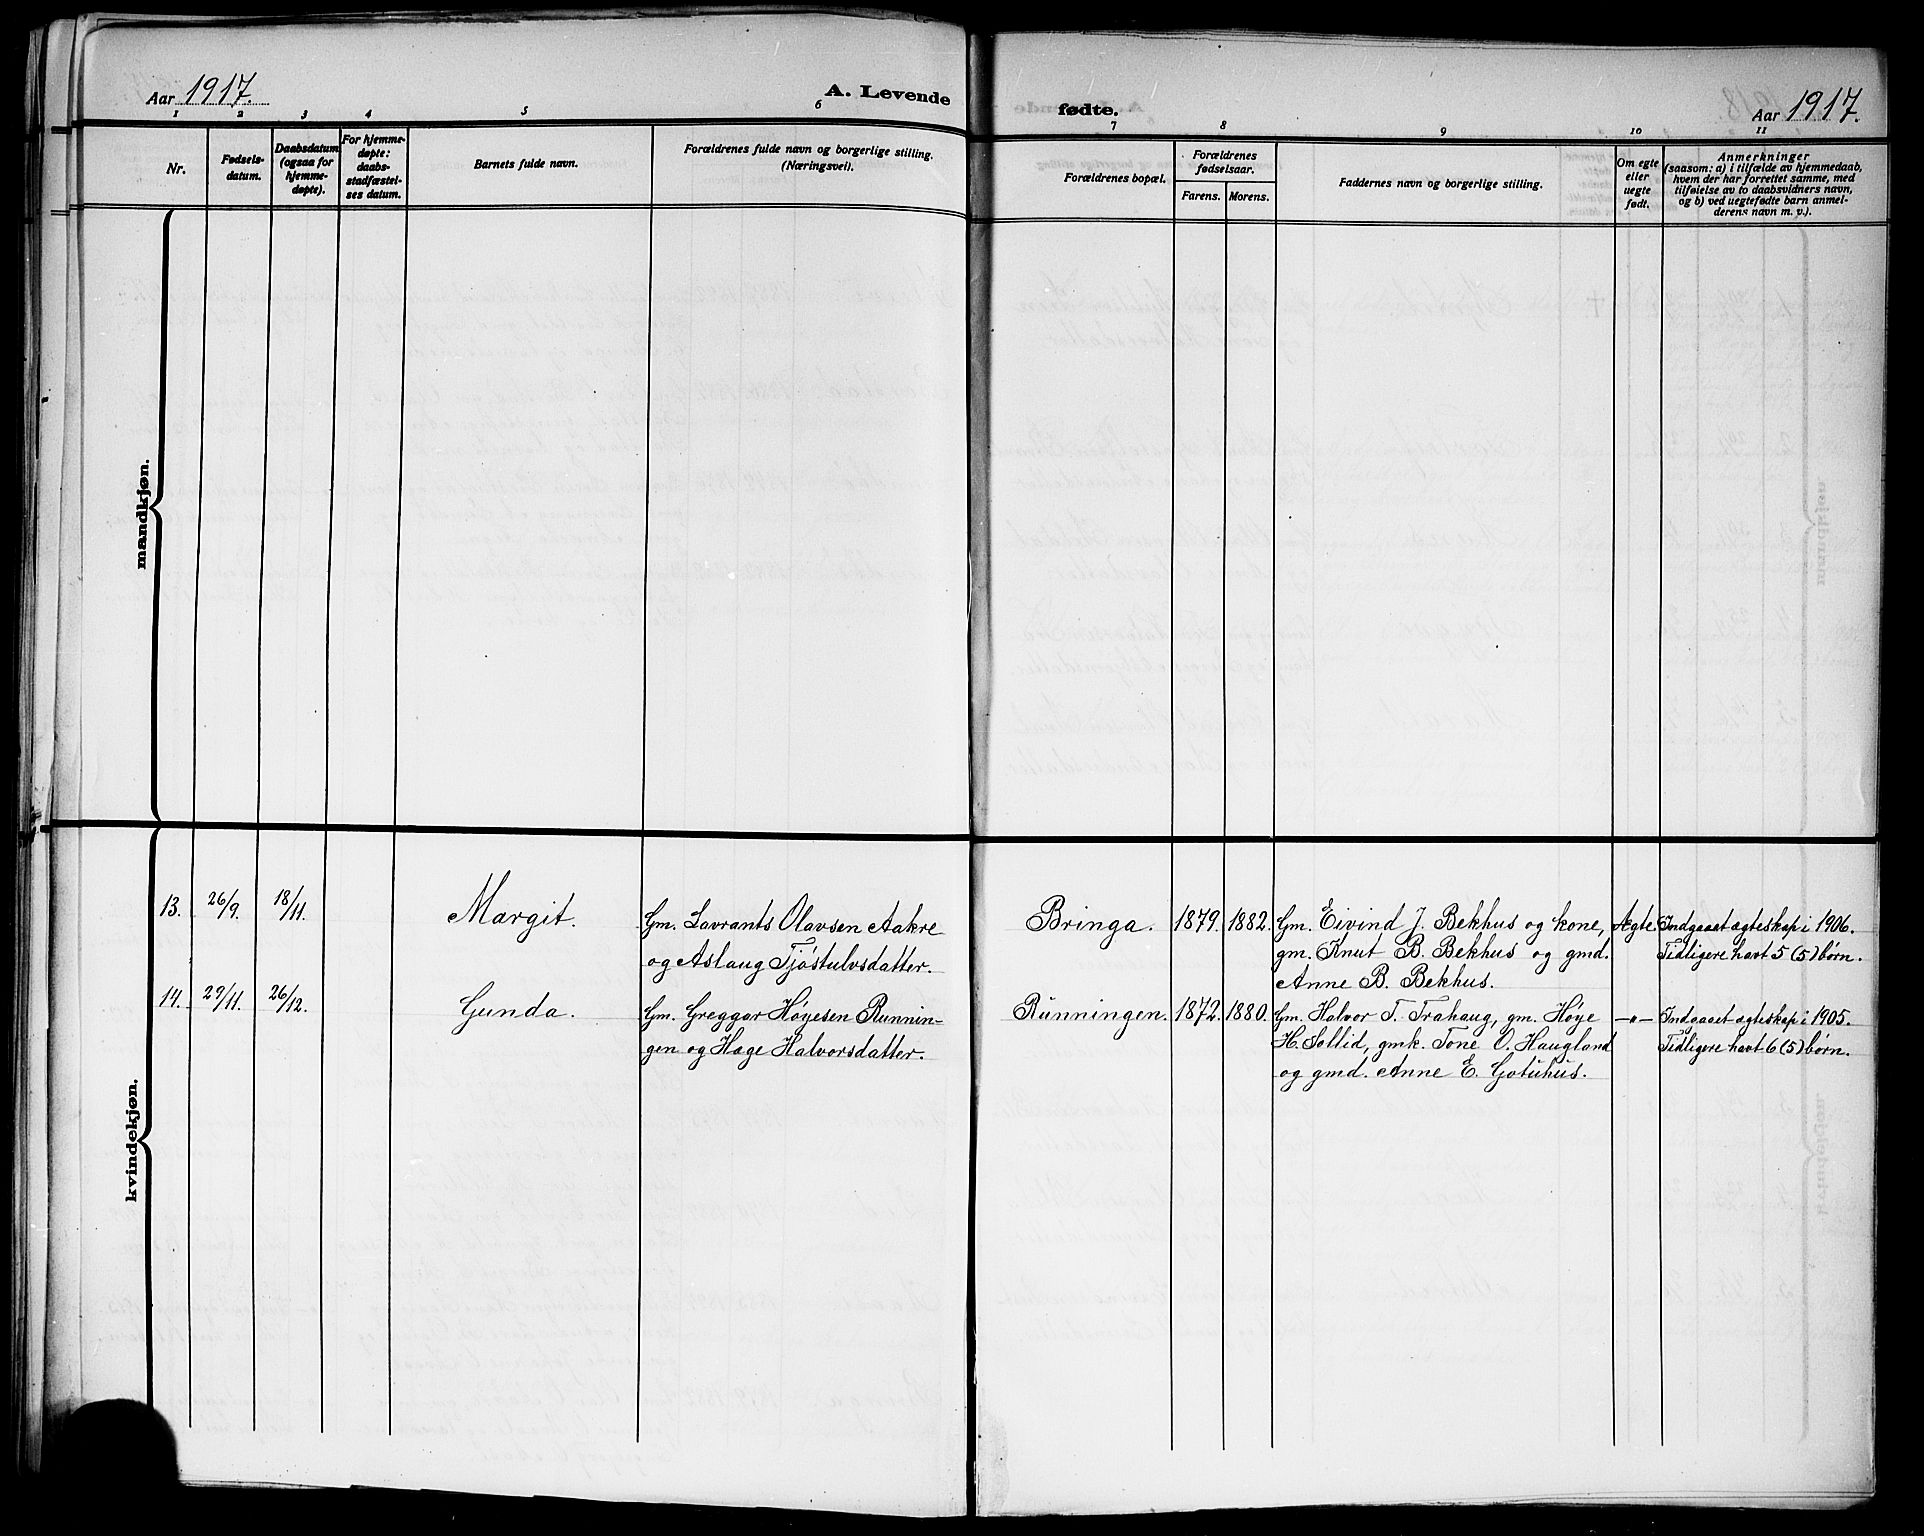 Aar 1917.
A. Levende
fødte.
Aar 1917.
1 2 3 4 5 6 7 8 9 10 11
Nr.
Fødsels-
datum.
Daabsdatum
(ogsaa for
hjemme-
døpte).
For hjemme-
døpte:
daabs-
stadfæstel-
ses datum.
Barnets fulde navn.
Forældrenes fulde navn og borgerlige stilling.
(Næringsvei).
Forældrenes bopæl.
Forældrenes
fødselsaar.
Farens. Morens.
Faddernes navn og borgerlige stilling.
Om egte
eller
uegte
født.
Anmerkninger
(saasom: a) i tilfælde av hjemmedaab,
hvem der har forrettet samme, med
tilføielse av to daabsvidners navn,
og b) ved uegtefødte barn anmel-
derens navn m. v.).
mandkjøn.
kvindekjøn.
13. 26/9. 18/11. Margit. Gm. Lavrants Olavsen Aakre Bringa. 1879. 1882. Gm. Eivind J. Bekhus og kone, Ægte. Indgaaet ægteskap i 1906.
og Aslaug Tjøstulvsdatter. gm. Knut B. Bekhus og gmd. Tidligere havt 5 (5) børn.
Anne B. Bekhus.
14. 29/11. 26/12. Gunda. Gm. Greggar Høyesen Runnin- Runningen. 1872. 1880. Gm. Halvor T. Trahaug, gm. Høye —"— Indgaaet ægteskap i 1905.
gen og Hæge Halvorsdatter. H. Sollid, gmk. Tone O. Haugland Tidligere havt 6 (5) børn.
og gmd. Anne E. Gotuhus.